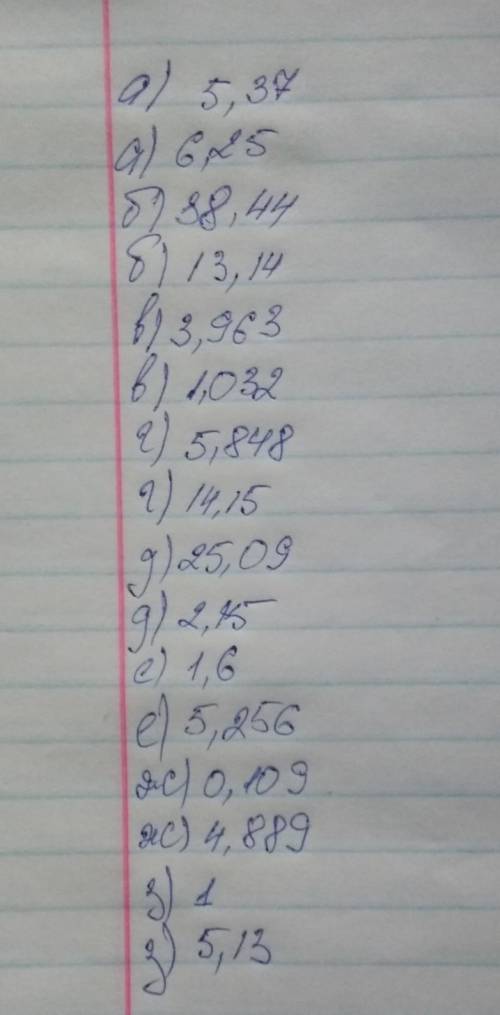 а) 5,37
а) 6,25
б) 38,44
б) 13,14
в) 3,963
в) 1,032
г) 5,848
г) 14,15
д) 25,09
д) 2,75
е) 1,6
е) 5,256
ж) 0,109
ж) 4,889
з) 1
з) 5,13